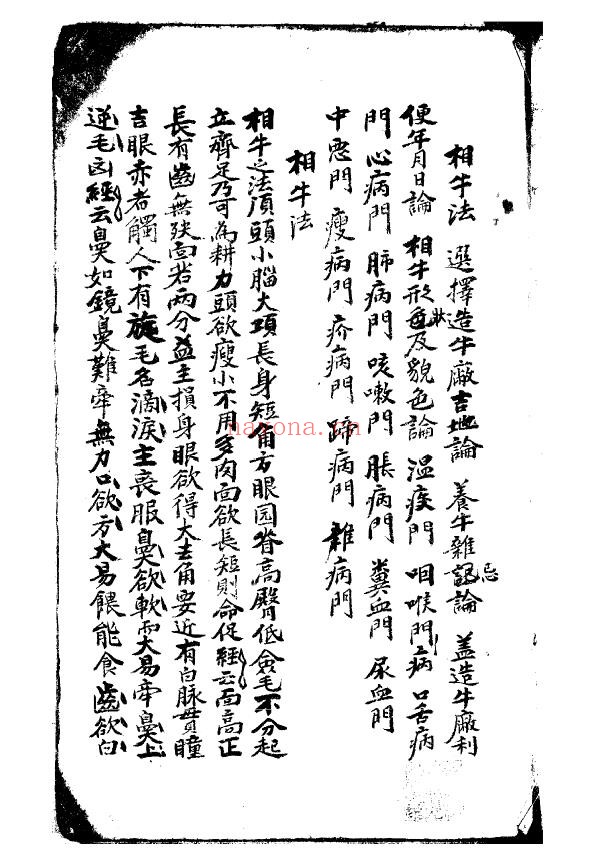 相牛法 選擇造牛廠吉地論 養牛雜忌論 盖造牛廠利
便年月日論 相牛形狀及貌色論 溫疫門 咽喉門病 口舌病
門 心病門 肺病門 咳嗽門 脹病門 糞血門 尿血門
中惡門 瘦病門 疥病門 蹄病門 雜病門
相牛法
相牛之法頂頭小腦大項長身短角方眼园脊高臀低 毛不分起
立齊足乃可為耕力頭欲瘦小不用多肉面欲長短則命促經云面高正
長有齒無 當若两分益主損身眼欲得大去角要近有白脉貫瞳
吉眼赤者觸人下有旋毛名滴淚主喪服鼻欲軟 大易牵鼻上
逆毛凶經云鼻如鏡鼻難牵無力口欲方大易餵能食齒欲白
nayona.cn